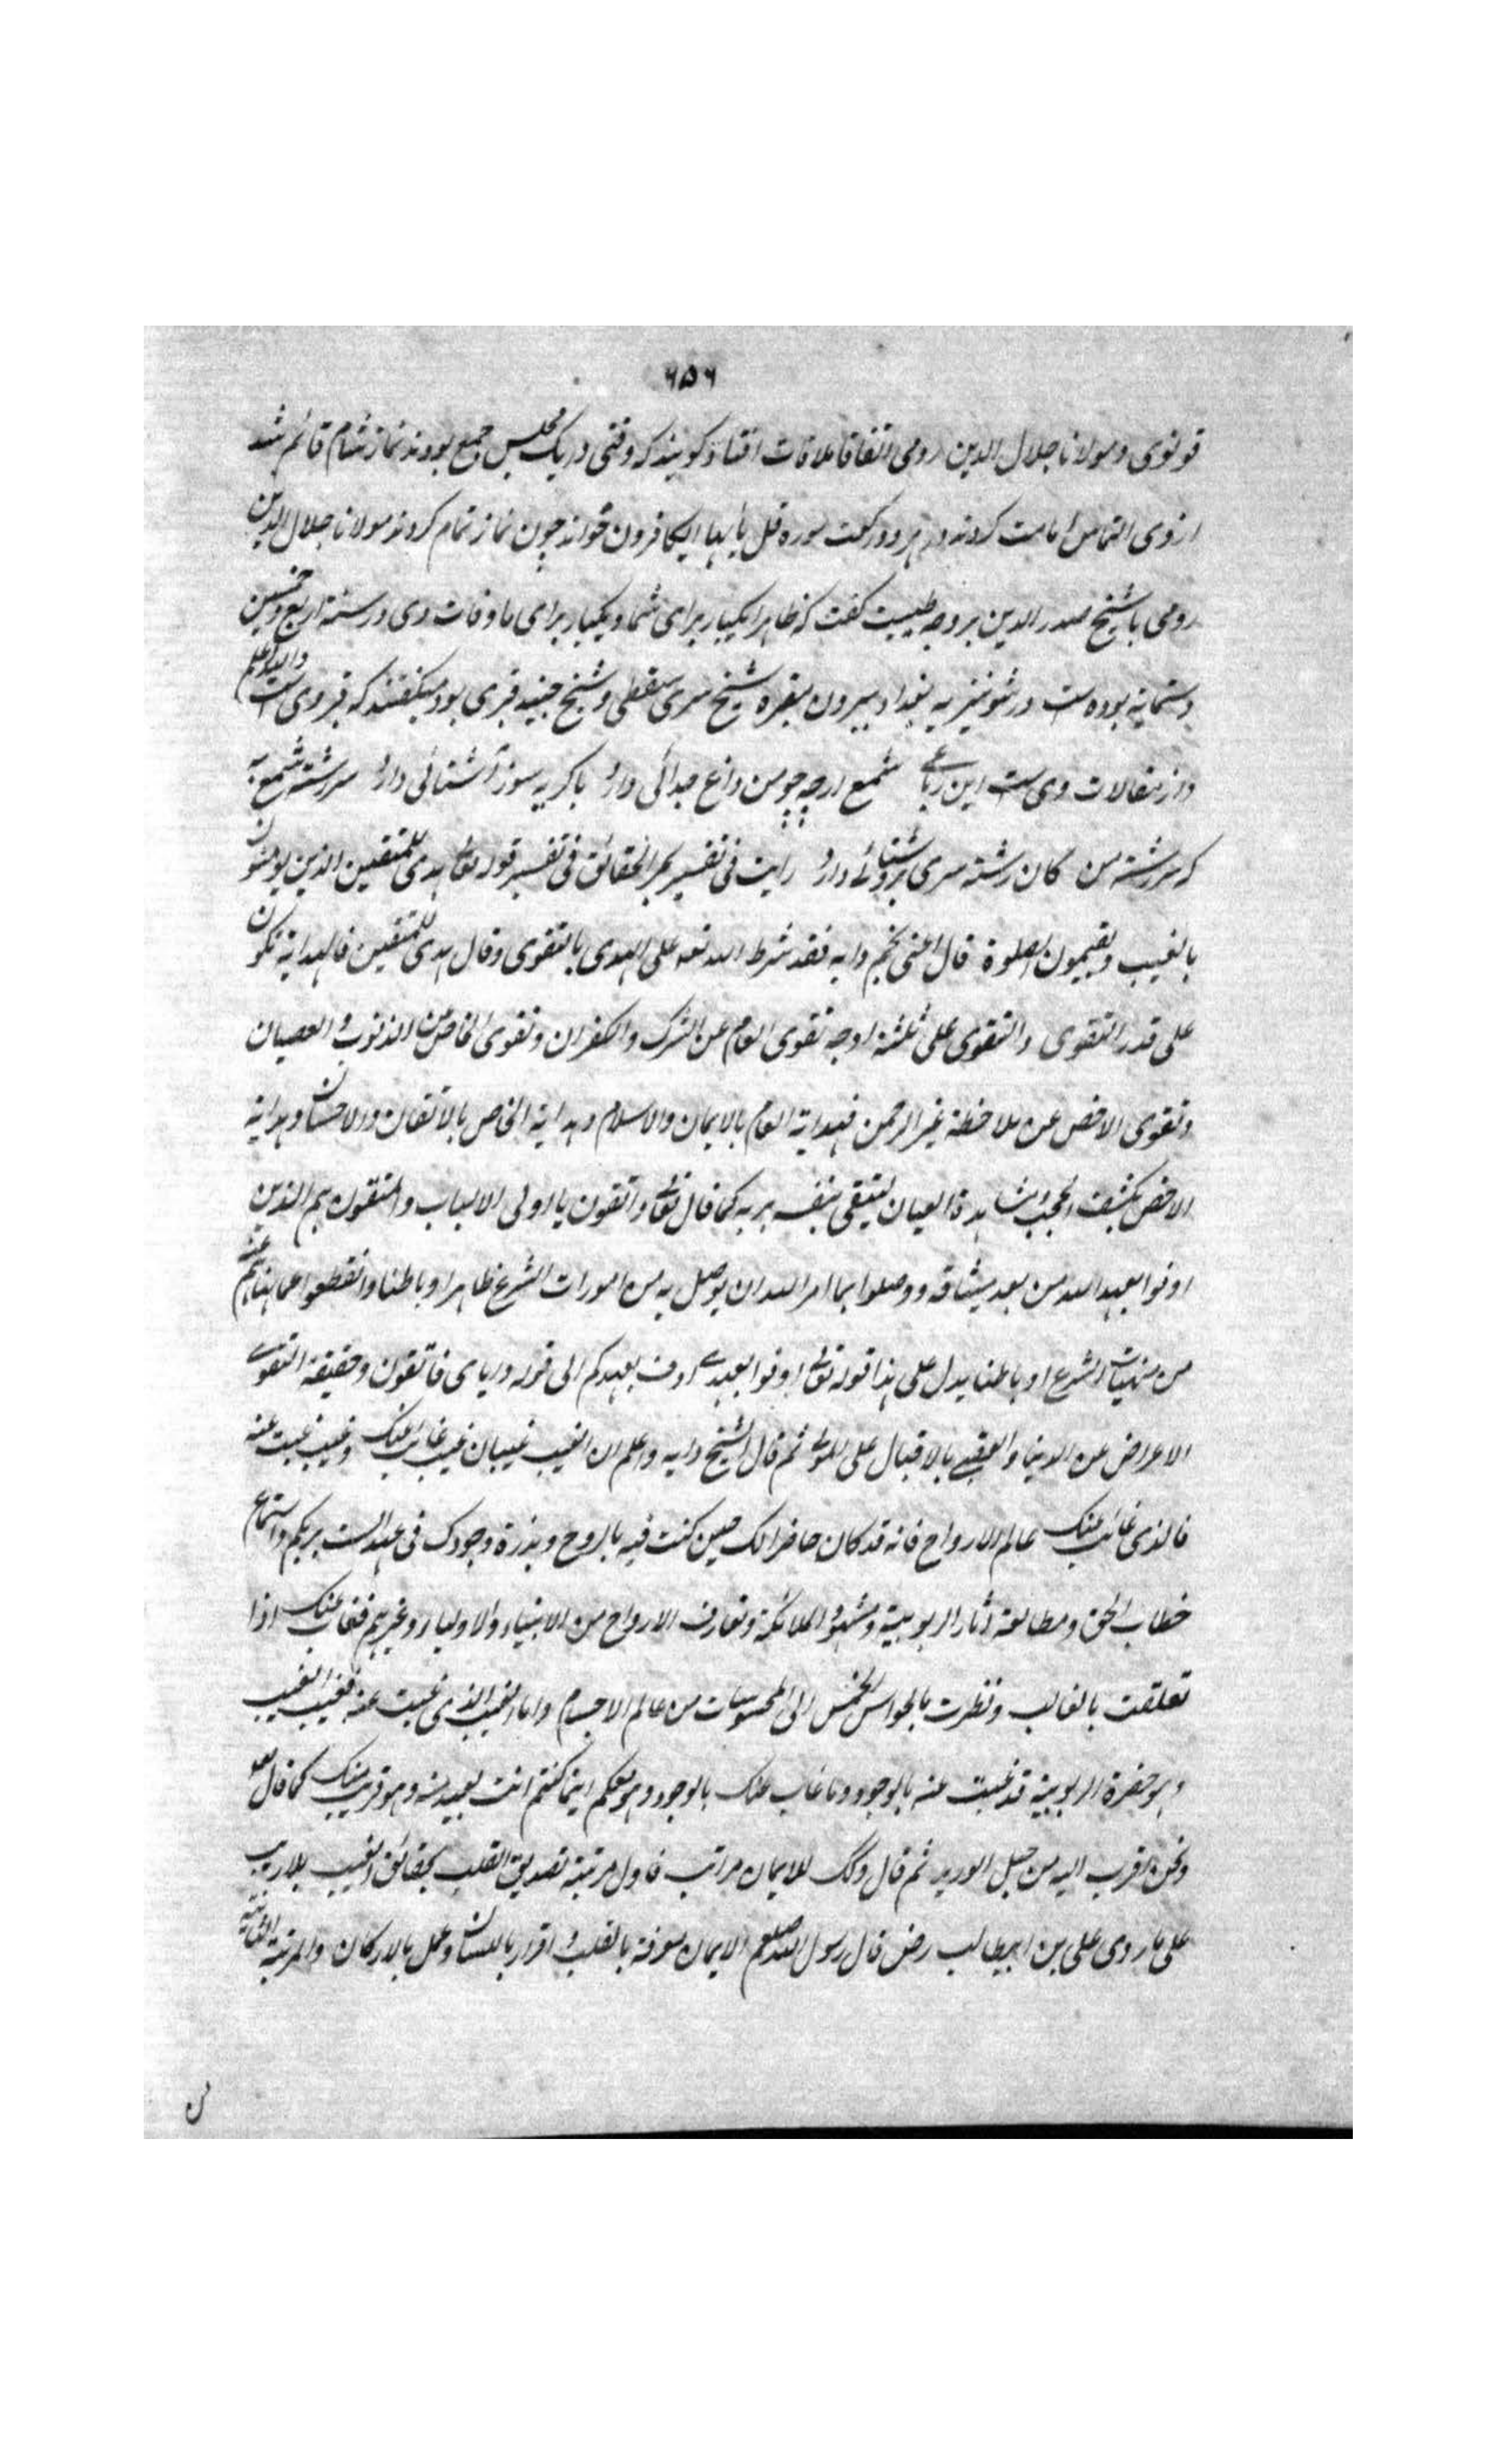 ۶۵۶
قونوی و مولانا جلال الدین رومی اتفاقا ملاقات افتاد گویند که وقتی در یک مجلس جمع بودند نماز شام قائم شد
از وی التماس امامت کردند در هر دو رکعت سوره قل یا ایها الکافرون خواند چون نماز تمام کردند مولانا جلال الدین
رومی با شیخ صدر الدین بر وجه طیبت گفت که ظاهرا یکبار برای شما و یکبار برای ما وفات وی در سنة اربع و خمسین
و ستمایة بوده است در شونیزیه بغداد بیرون مقبره شیخ سری سقطی و شیخ جنید قبری بود میگفتند که قبر وی است والله اعلم
و از مقالات وی است این رباعی شمع ارچه چو من داغ جدائی دارد با گریه سوز آشنائی دارد سر رشته شمع به
که سر رشته من کان رشته سری بروشنائی دارد رایت فی تفسیر بحر الحقائق فی تفسیر قوله تعالی هدی للمتقین الذین یومنون
بالغیب و یقیمون الصلوة قال اعنی نجم دایه فقد شرط الله تعه علی الهدی بالتقوی و قال هدی للمتقین فالهدایة تکون
علی قدر التقوی و التقوی علی ثلثة اوجه تقوی العام عن الشرک و الکفران و تقوی الخاص عن الذنوب و العصیان
و تقوی الاخص عن ملاحظة غیر الرحمن فهدایة العام بالایمان والاسلام و هدایة الخاص بالاتقان والاحسان و هدایة
الاخص بکشف الحجب و مشاهدة العیان لیتقی بنفسه بربه کما قال تعالی واتقون یا اولی الالباب والمتقون هم الذین
اوفوا بعهد الله من بعد میثاقه و وصلوا بما امر الله ان یوصل به من امورات الشرع ظاهرا و باطنا وانقطعوا عما نهاهم عنه
من منهیات الشرع او باطنا یدل علی هذا قوله تعالی اوفوا بعهدی اوف بعهدکم الی قوله و ایای فاتقون و حقیقة التقوی
الاعراض عن الدنیا والعقبی بالاقبال علی المولی ثم قال الشیخ دایه واعلم ان الغیب غیبان غیب غائب عنک و غیب غبت عنه
فالذی غائب عنک عالم الارواح فانه قد کان حاضرا لک حین کنت فیه بالروح و بذرة وجودک فی عهد الست بربکم و استماع
خطاب الحق و مطالعة آثار الربوبیة و شهود الملائکة و تعارف الارواح من الانبیاء والاولیاء و غیرهم فغاب عنک اذا
تعلقت بالقالب و نظرت بالحواس الخمس الی المحسوسات من عالم الاجسام و اما الغیب الذی غبت عنه فغیب الغیب
و هو حضرة الربوبیة قد غبت عنه بالوجود و ما غاب عنک بالوجود و هو معکم اینما کنتم انت بعید منه و هو قریب منک کما قال تعه
و نحن اقرب الیه من حبل الورید ثم قال و لک للایمان مراتب فاول مرتبة تصدیق القلب بحقائق الغیب بلا ریب
علی ما روی علی بن ابیطالب رض قال رسول الله صلعم الایمان معرفة بالقلب و اقرار باللسان و عمل بالارکان والمرتبة الثانیة